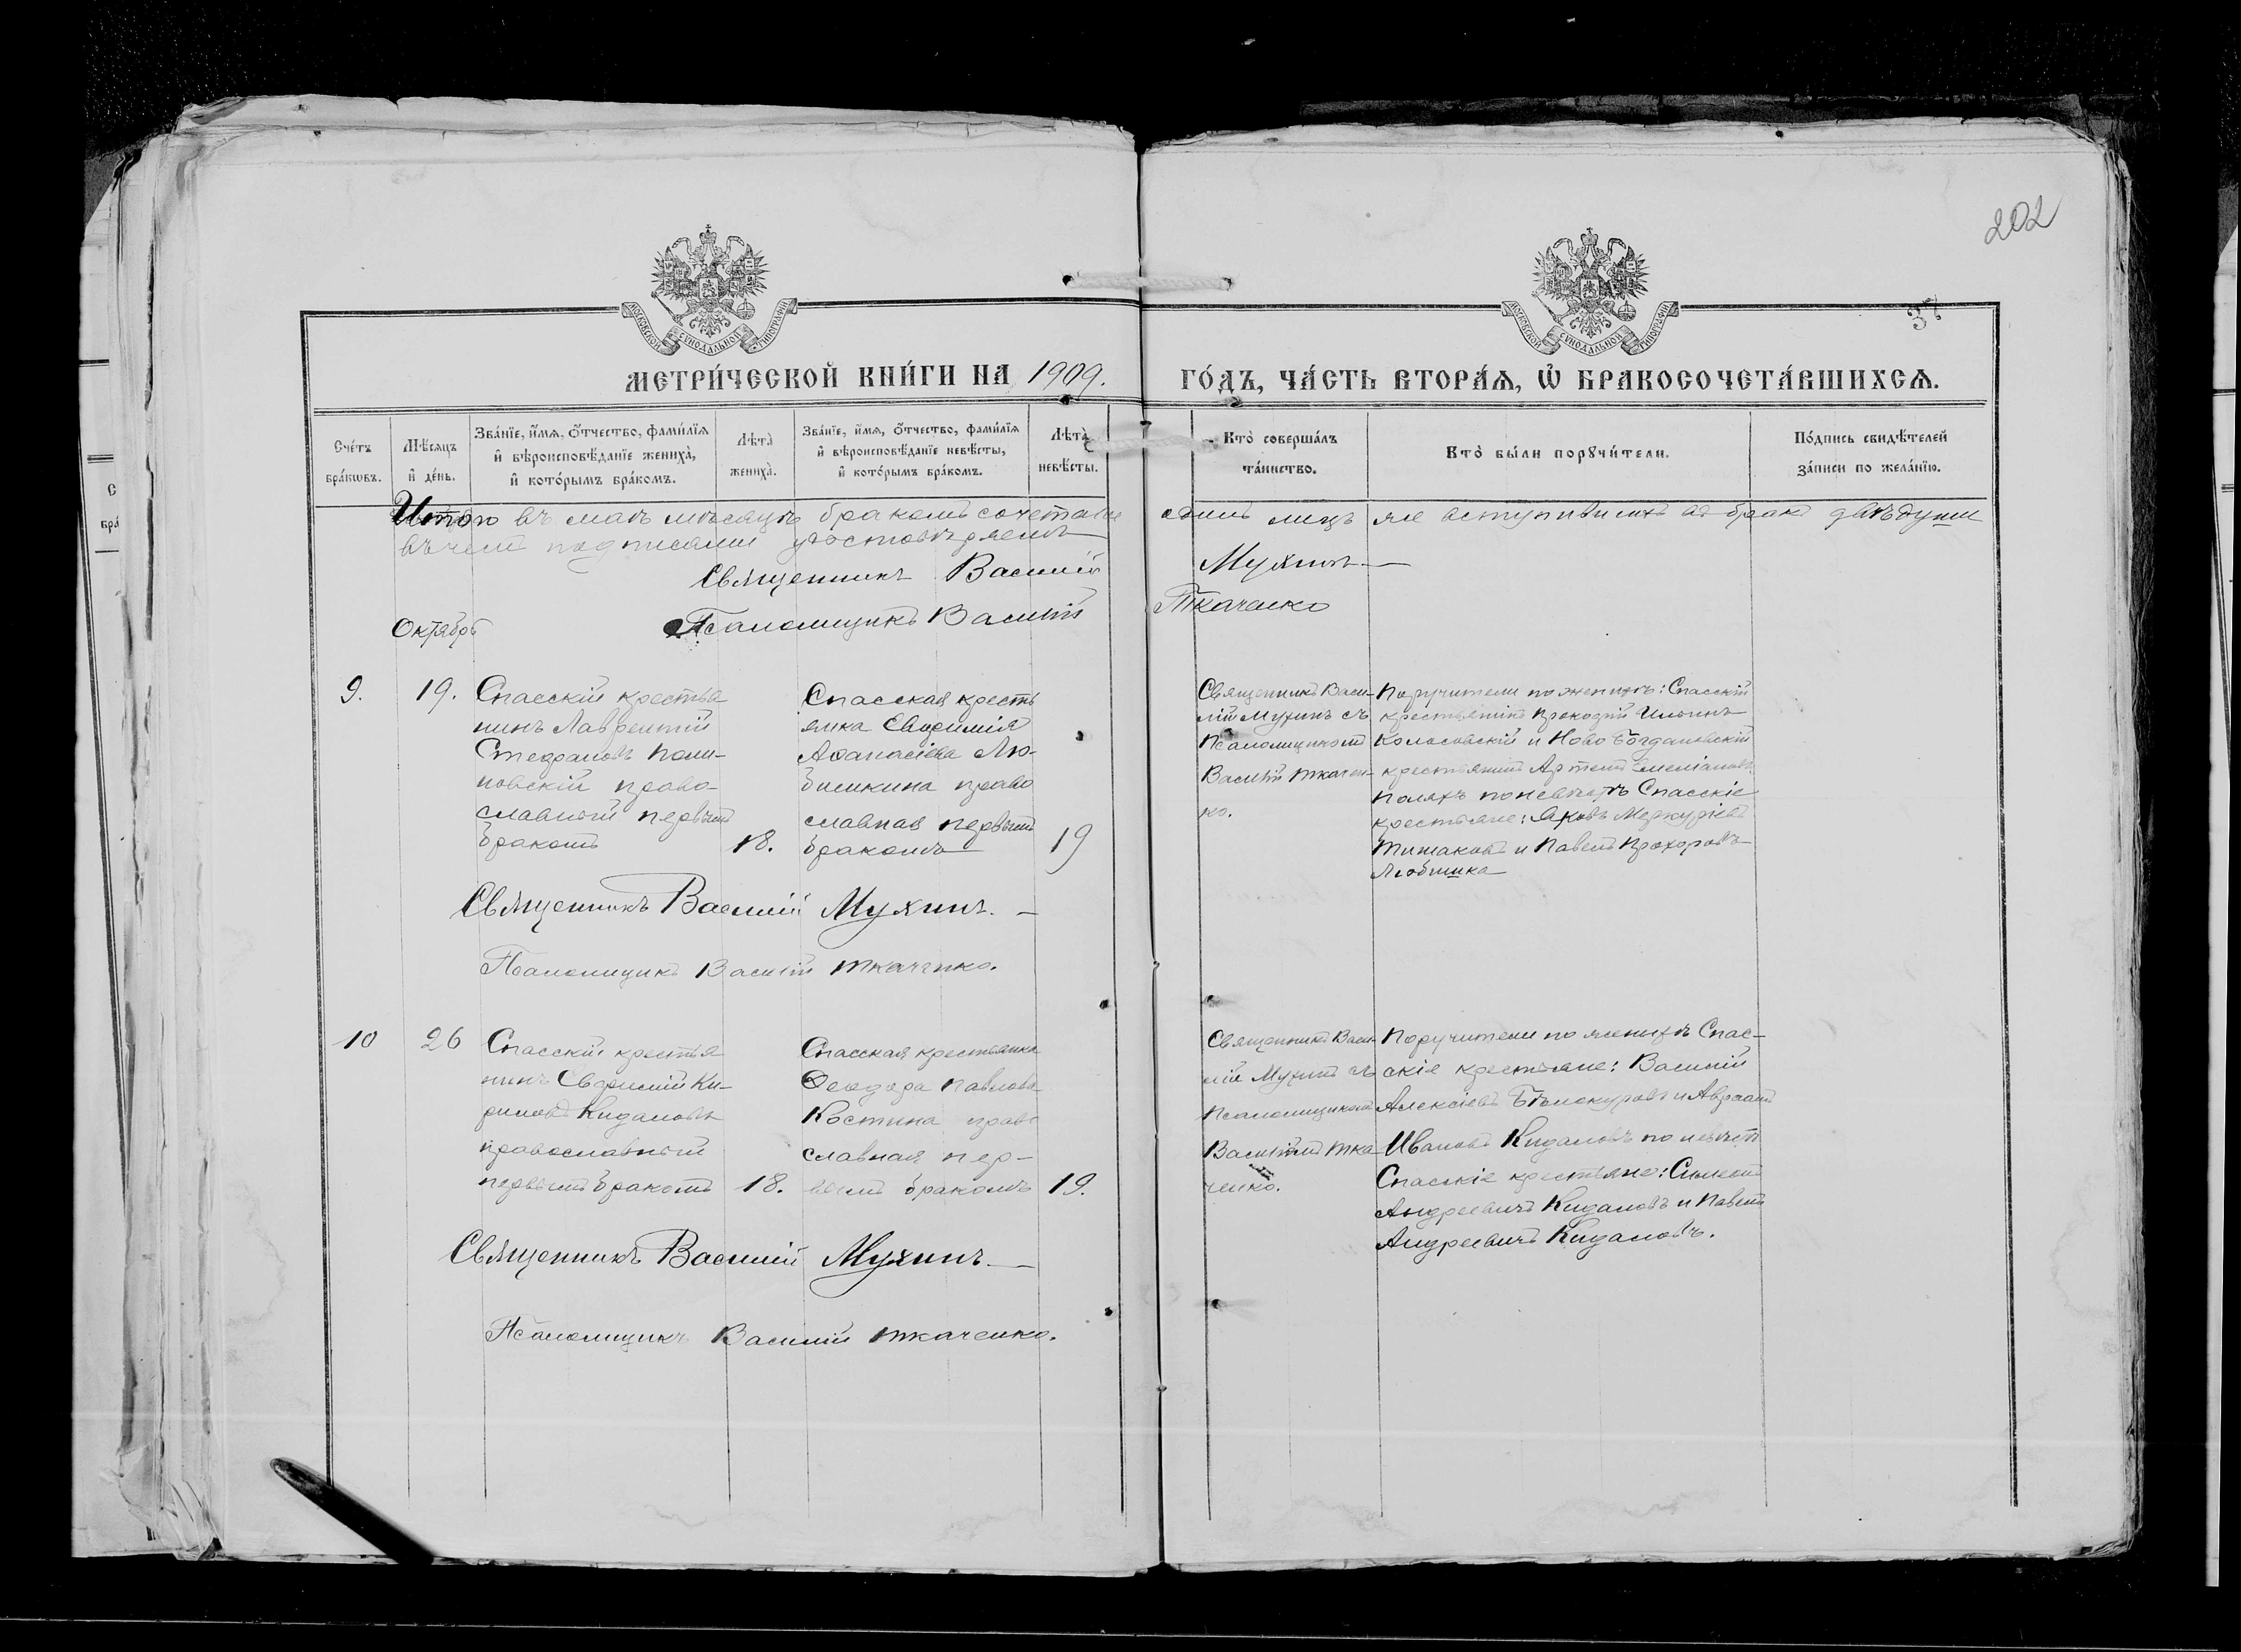 202
37
МОСКОВСКОЙ СѴНОДАЛЬНОЙ ТИПОГРАФІИ
МОСКОВСКОЙ СѴНОДАЛЬНОЙ ТИПОГРАФІИ
МЕТРИ́ЧЕСКОЙ КНИ́ГИ НА 1909. ГО́ДЪ, ЧА́СТЬ ВТОРА́Ѧ, Ѽ БРАКОСОЧЕТА́ВШИХСѦ.
Сче́тъ бра́кѡвъ.
Мѣ́сѧцъ и҆ де́нь.
Зва́нїе, и҆́мѧ, ѻ҆́тчество, фами́лїѧ и҆ вѣроисповѣ́данїе жениха̀, и҆ кото́рымъ бра́комъ.
Лѣ́та̀ жениха̀.
Зва́нїе, и҆́мѧ, ѻ҆́тчество, фами́лїѧ и҆ вѣроисповѣ́данїе невѣ́сты, и҆ кото́рымъ бра́комъ.
Лѣ́та̀ невѣ́сты.
Кто̀ соверша́лъ та́инство.
Кто̀ бы́ли порꙋчи́тели.
По́дпись свидѣ́телей за́писи по жела́нїю.
Итого въ маѣ мѣсяцѣ бракомъ
въ чемъ подписями удостовѣряемъ
Священникъ Василій Мухинъ
Псаломщикъ Василій Ткаченко
Октябрь
9.
19.
Спасскій крестья
нинъ Лаврентій
Стефановъ Поли-
новскій право-
славный первымъ
бракомъ
18.
Спасская кресть
янка Евфимія
Аѳанасіева Лю-
бишкина право
славная первымъ
бракомъ
19
Священникъ Васи-
лій Мухинъ съ
Псаломщикомъ
Василій Ткачен-
ко.
Поручители по женихѣ: Спасскій
крестьянинъ Прокофій Ильинъ
Колосовскій и Ново Богдановскій
крестьянинъ Артемъ Емеліановъ
Поляхъ по невѣстѣ Спасскіе
крестьяне: Яковъ Меркуріевъ
Тишаковъ и Павелъ Прохоровъ
Любишка
Священникъ Василій Мухинъ.
Псаломщикъ Василій Ткаченко.
10
26
Спасскій крестья
нинъ Евфимій Ки-
риловъ Кидаловъ
православный
первымъ бракомъ
18.
Спасская крестьянка
Ѳеодора Павлова
Костина право
славная пер-
вымъ бракомъ
19.
Священникъ Васи-
лій Мухинъ съ
Псаломщикомъ
Василіймъ Тка
ченко.
Поручители по женихѣ Спас-
скіе крестьяне: Василій
Алексіевъ Бѣлокуровъ и Авраамъ
Ивановъ Кидаловъ по невѣстѣ
Спасскіе крестьяне: Симеонъ
Андреевичъ Кидаловъ и Павелъ
Андреевичъ Кидаловъ.
Священникъ Василій Мухинъ
Псаломщикъ Василій Ткаченко.